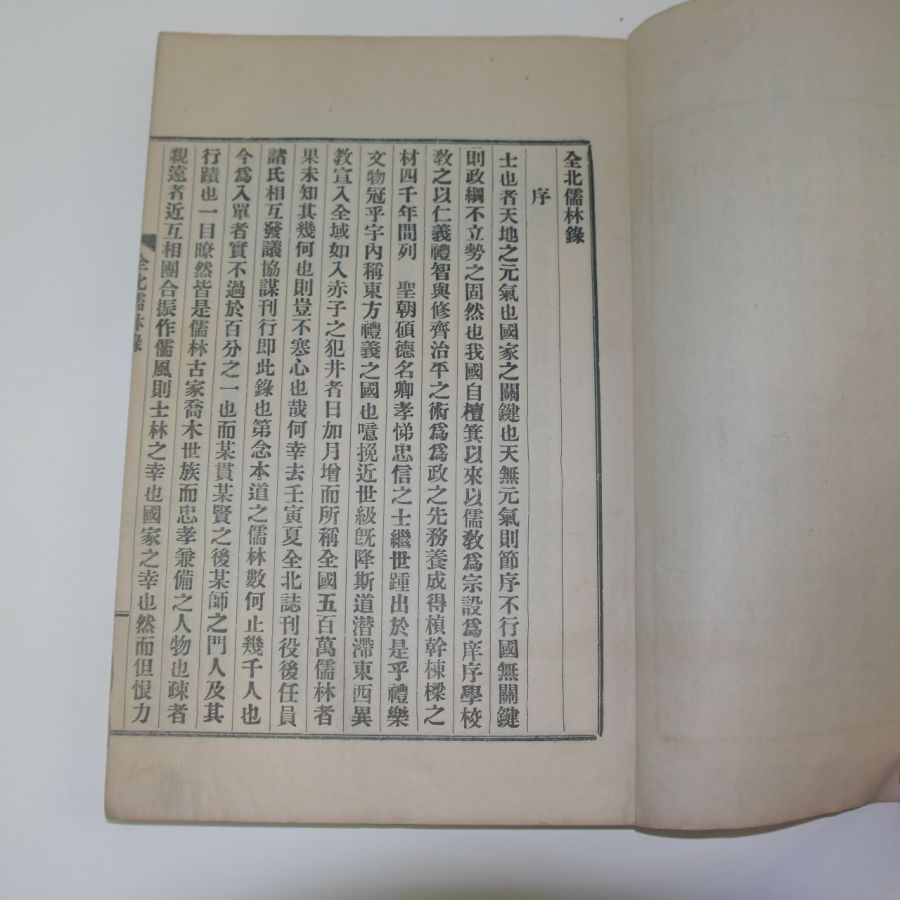 全北儒林錄
序
士也者天地之元氣也國家之關鍵也天無元氣則節序不行國無關鍵
則政綱不立勢之固然也我國自檀箕以來以儒敎爲宗設爲庠序學校
敎之以仁義禮智與修齊治平之術爲爲政之先務養成得楨幹棟樑之
材四千年間列 聖朝碩德名卿孝悌忠信之士繼世踵出於是乎禮樂
文物冠乎宇內稱東方禮義之國也噫挽近世級旣降斯道潜滯東西異
敎宣入全域如入赤子之犯井者日加月增而所稱全國五百萬儒林者
果未知其幾何也則豈不寒心也哉何幸去壬寅夏全北誌刊役後任員
諸氏相互發議協謀刊行即此錄也第念本道之儒林數何止幾千人也
今爲入單者實不過於百分之一也而某貫某賢之後某師之門人及其
行蹟也一目瞭然皆是儒林古家喬木世族而忠孝兼備之人物也疎者
親遠者近互相團合振作儒風則士林之幸也國家之幸也然而但恨力
全北儒林錄
一